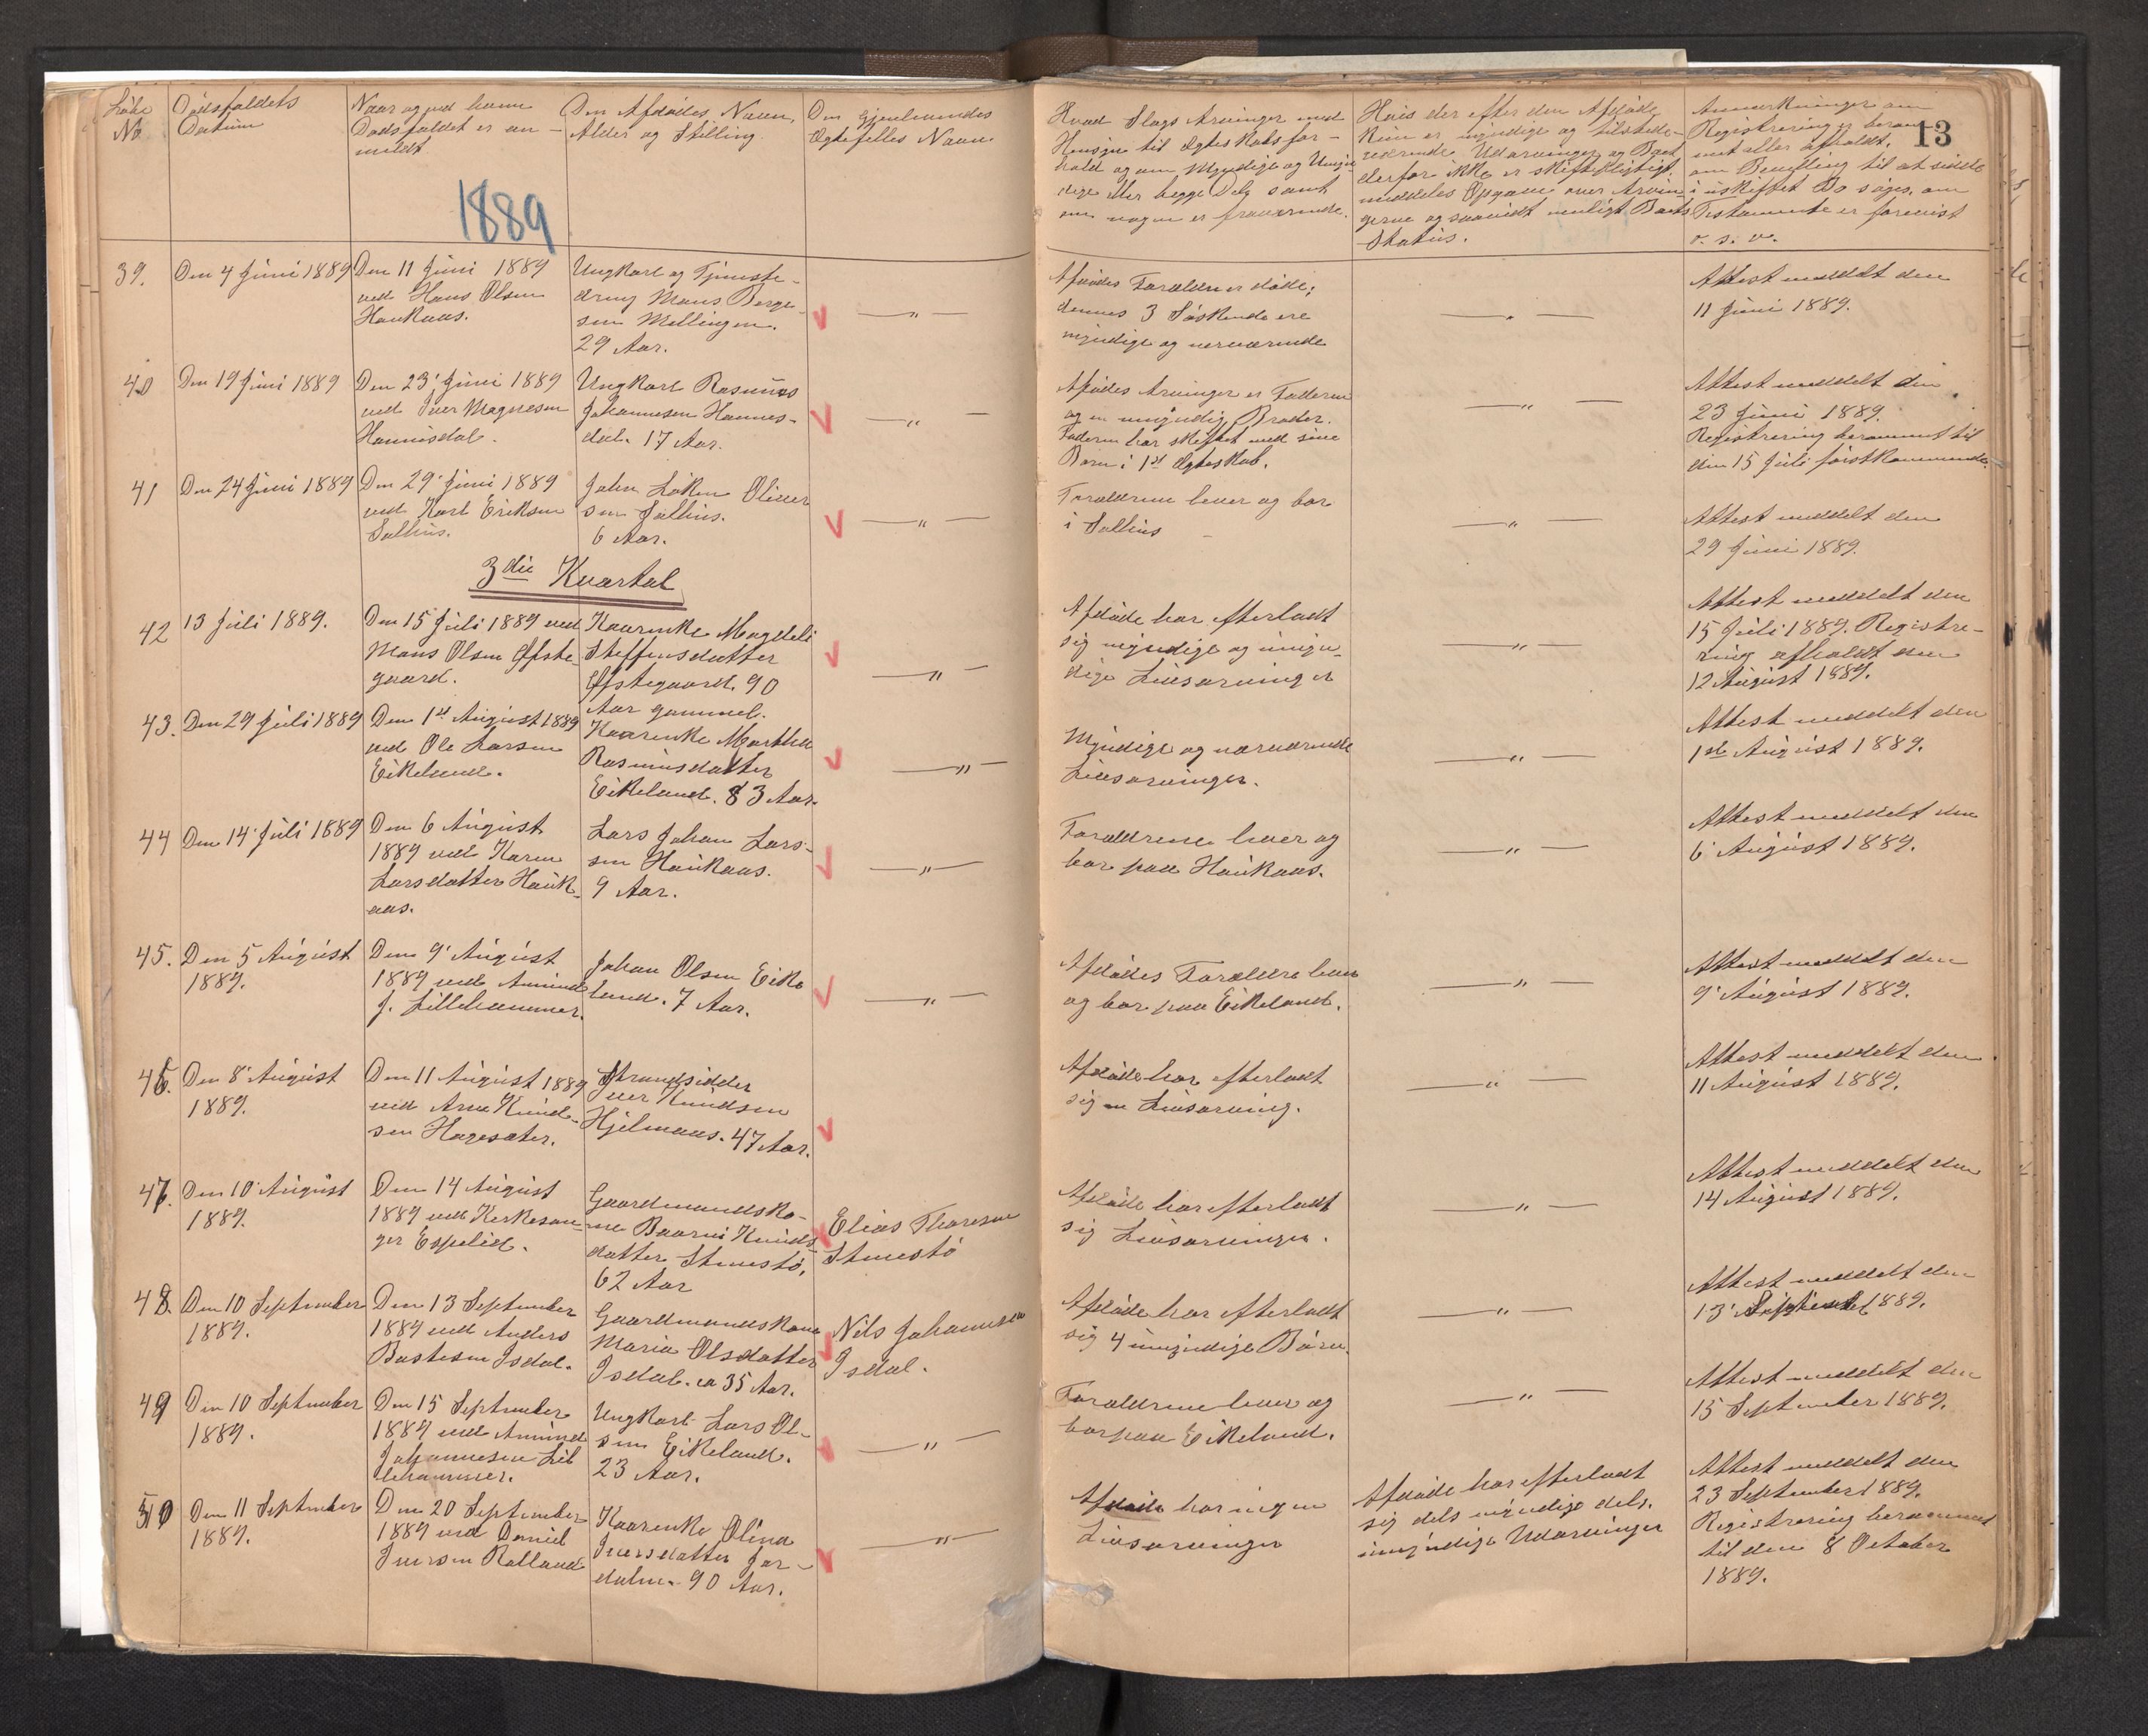 Løbe
No
Dødsfaldets
Datum
Naar og ved hvem
Dødsfaldet er an-
meldt
Den Afdødes Navn,
Alder og Stilling.
Den Gjenlevendes
Ægtefelles Navn.
Hvad Slags Arvinger med
Hensyn til Ægteskabsfor-
hold og om Myndige og Umyn-
dige eller begge Dele samt
om nogen er fraværende.
Hvis der efter den Afdøde
kun er myndige og tilstede-
værende Udarvinger og Boet
derfor ikke er skiftepligtigt,
meddeles Opgave over Arvin-
gerne og saavidt muligt Boets
Status.
Anmærkninger om
Registrering er beram-
met eller afholdt,
om Bevilling til at sidde
i uskiftet Bo søges, om
Testamente er forevist
o. s. v.
13
1889
39.
Den 4 Juni 1889
Den 11 Juni 1889
ved Hans Olsen
Haukaas.
Ungkarl og Tjeneste-
dreng Mons Berge-
sen Mellingen.
29 Aar.
— „ —
Afdødes Forældre er døde;
dennes 3 Søskende ere
myndige og nerværende
— „ —
Attest meddelt den
11 Juni 1889.
40
Den 19 Juni 1889
Den 23' Juni 1889
ved Iver Magnesen
Hannisdal.
Ungkarl Rasmus
Johannesen Hannes-
dal. 17 Aar.
— „ —
Afdødes Arvinger er Faderen
og en umyndig Broder.
Faderen har skiftet med sine
Børn i 1ste Ægteskab.
— „ —
Attest meddelt den
23 Juni 1889.
Registrering berammet til
den 15 Juli førstkommende.
41
Den 24 Juni 1889
Den 29' Juni 1889
ved Karl Eriksen
Salhus.
John Løken Oliver
sen Salhus.
6 Aar.
— „ —
Forældrene lever og bor
i Salhus
— „ —
Attest meddelt den
29 Juni 1889.
3die Kvartal
42
13 Juli 1889.
Den 15 Juli 1889 ved
Mons Olsen Øfste-
gaard.
Kaarenke Magdeli
Steffensdatter
Øfstegaard. 90
Aar gammel.
— „ —
Afdøde har efterladt
sig myndige og umyn-
dige Livsarvinger
— „ —
Attest meddelt den
15 Juli 1889. Registre-
ring afholdt den
12 August 1889.
43.
Den 29 Juli 1889
Den 1st August 1889
ved Ole Larsen
Eikeland.
Kaarenke Marthe
Rasmusdatter
Eikeland. 83 Aar.
— „ —
Myndige og nærværende
Livsarvinger.
— „ —
Attest meddelt den
1ste August 1889.
44
Den 14' Juli 1889
Den 6 August
1889 ved Karen
Larsdatter Hauk-
aas.
Lars Johan Lars-
sen Haukaas.
9 Aar.
— „ —
Forældrene lever og
bor paa Haukaas.
— „ —
Attest meddelt den
6' August 1889.
45.
Den 5 August
1889.
Den 9' August
1889 ved Amund
J. Lillehammer.
Johan Olsen Eike
land. 7 Aar.
— „ —
Afdødes Forældre lever
og bor paa Eikeland.
— „ —
Attest meddelt den
9' August 1889.
46.
Den 8' August
1889.
Den 11 August 1889
ved Arne Knud-
sen Hagesæter.
Strandsidder
Iver Knudsen
Hjelmaas. 47 Aar.
Afdøde har efterladt
sig en Livsarving.
— „ —
Attest meddelt den
11 August 1889.
47.
Den 10' August
1889.
Den 14 August
1889 ved Kirkesan-
ger Espelid.
Gaardmandsko-
ne Baarni Knuds-
datter Stenestø,
62 Aar
Elias Thoresen
Stenestø
Afdøde har efterladt
sig Livsarvinger.
— „ —
Attest meddelt den
14 August 1889.
48.
Den 10 September
1889.
Den 13 September
1889 ved Anders
Bastesen Isdal.
Gaardmandskone
Maria Olsdatter
Isdal. ca 35 Aar.
Nils Johannesen
Isdal.
Afdøde har efterladt
sig 4 umyndige Børn.
— „ —
Attest meddelt den
13' September 1889.
49
Den 10 September
1889.
Den 15 September
1889 ved Amund
Johannesen Lil
lehammer.
Ungkarl Lars Ol-
sen Eikeland.
23 Aar.
— „ —
Forældrene lever og
bor paa Eikeland.
— „ —
Attest meddelt den
15 September 1889.
50
Den 11 September
1889.
Den 20 September
1889 ved Daniel
Iversen Rolland
Kaarenke Olina
Iversdatter Jor-
dalen. 90 Aar.
— „ —
Afdøde har ingen
Livsarvinger
Afdøde har efterladt
sig dels myndige dels
umyndige Udarvinger
Attest meddelt den
23 September 1889.
Registrering berammet
til den 8 October
1889.